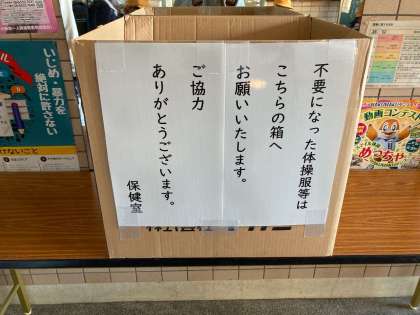 不要になった体操服等は
こちらの箱へ
お願いいたします。
ご協力
ありがとうございます。
保健室
いじめ・暴力を
絶対に許さない
動画コンテスト
めっちゃ